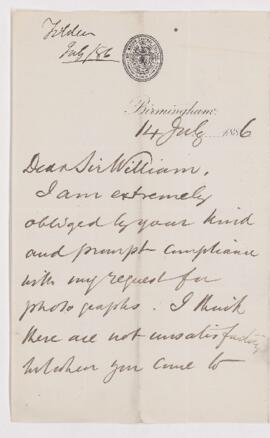 Tilden
July/86
Birmingham.
14 July 1886
Dear Sir William,
I am extremely
obliged by your kind
and prompt compliance
with my request for
photographs. I think
these are not unsatisfactory
but when you come to